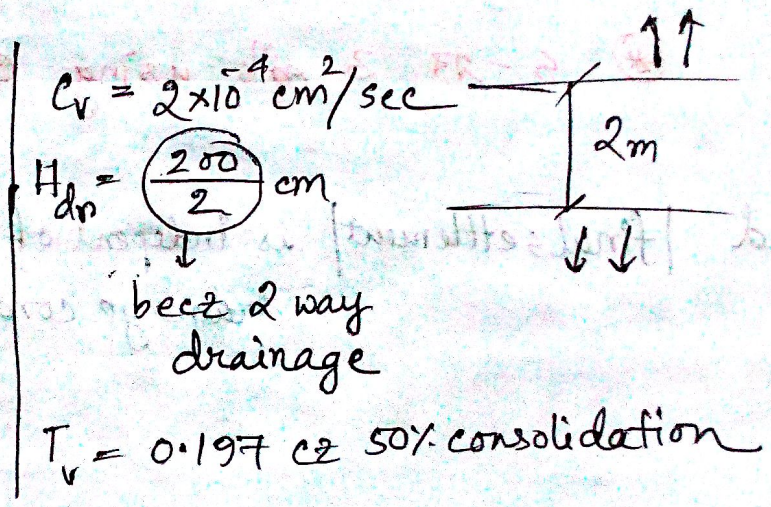 Cv = 2×10⁻⁴ cm²/sec
2m
Hdr = 200/2 cm
becz 2 way
drainage
Tv = 0.197 cz 50% consolidation